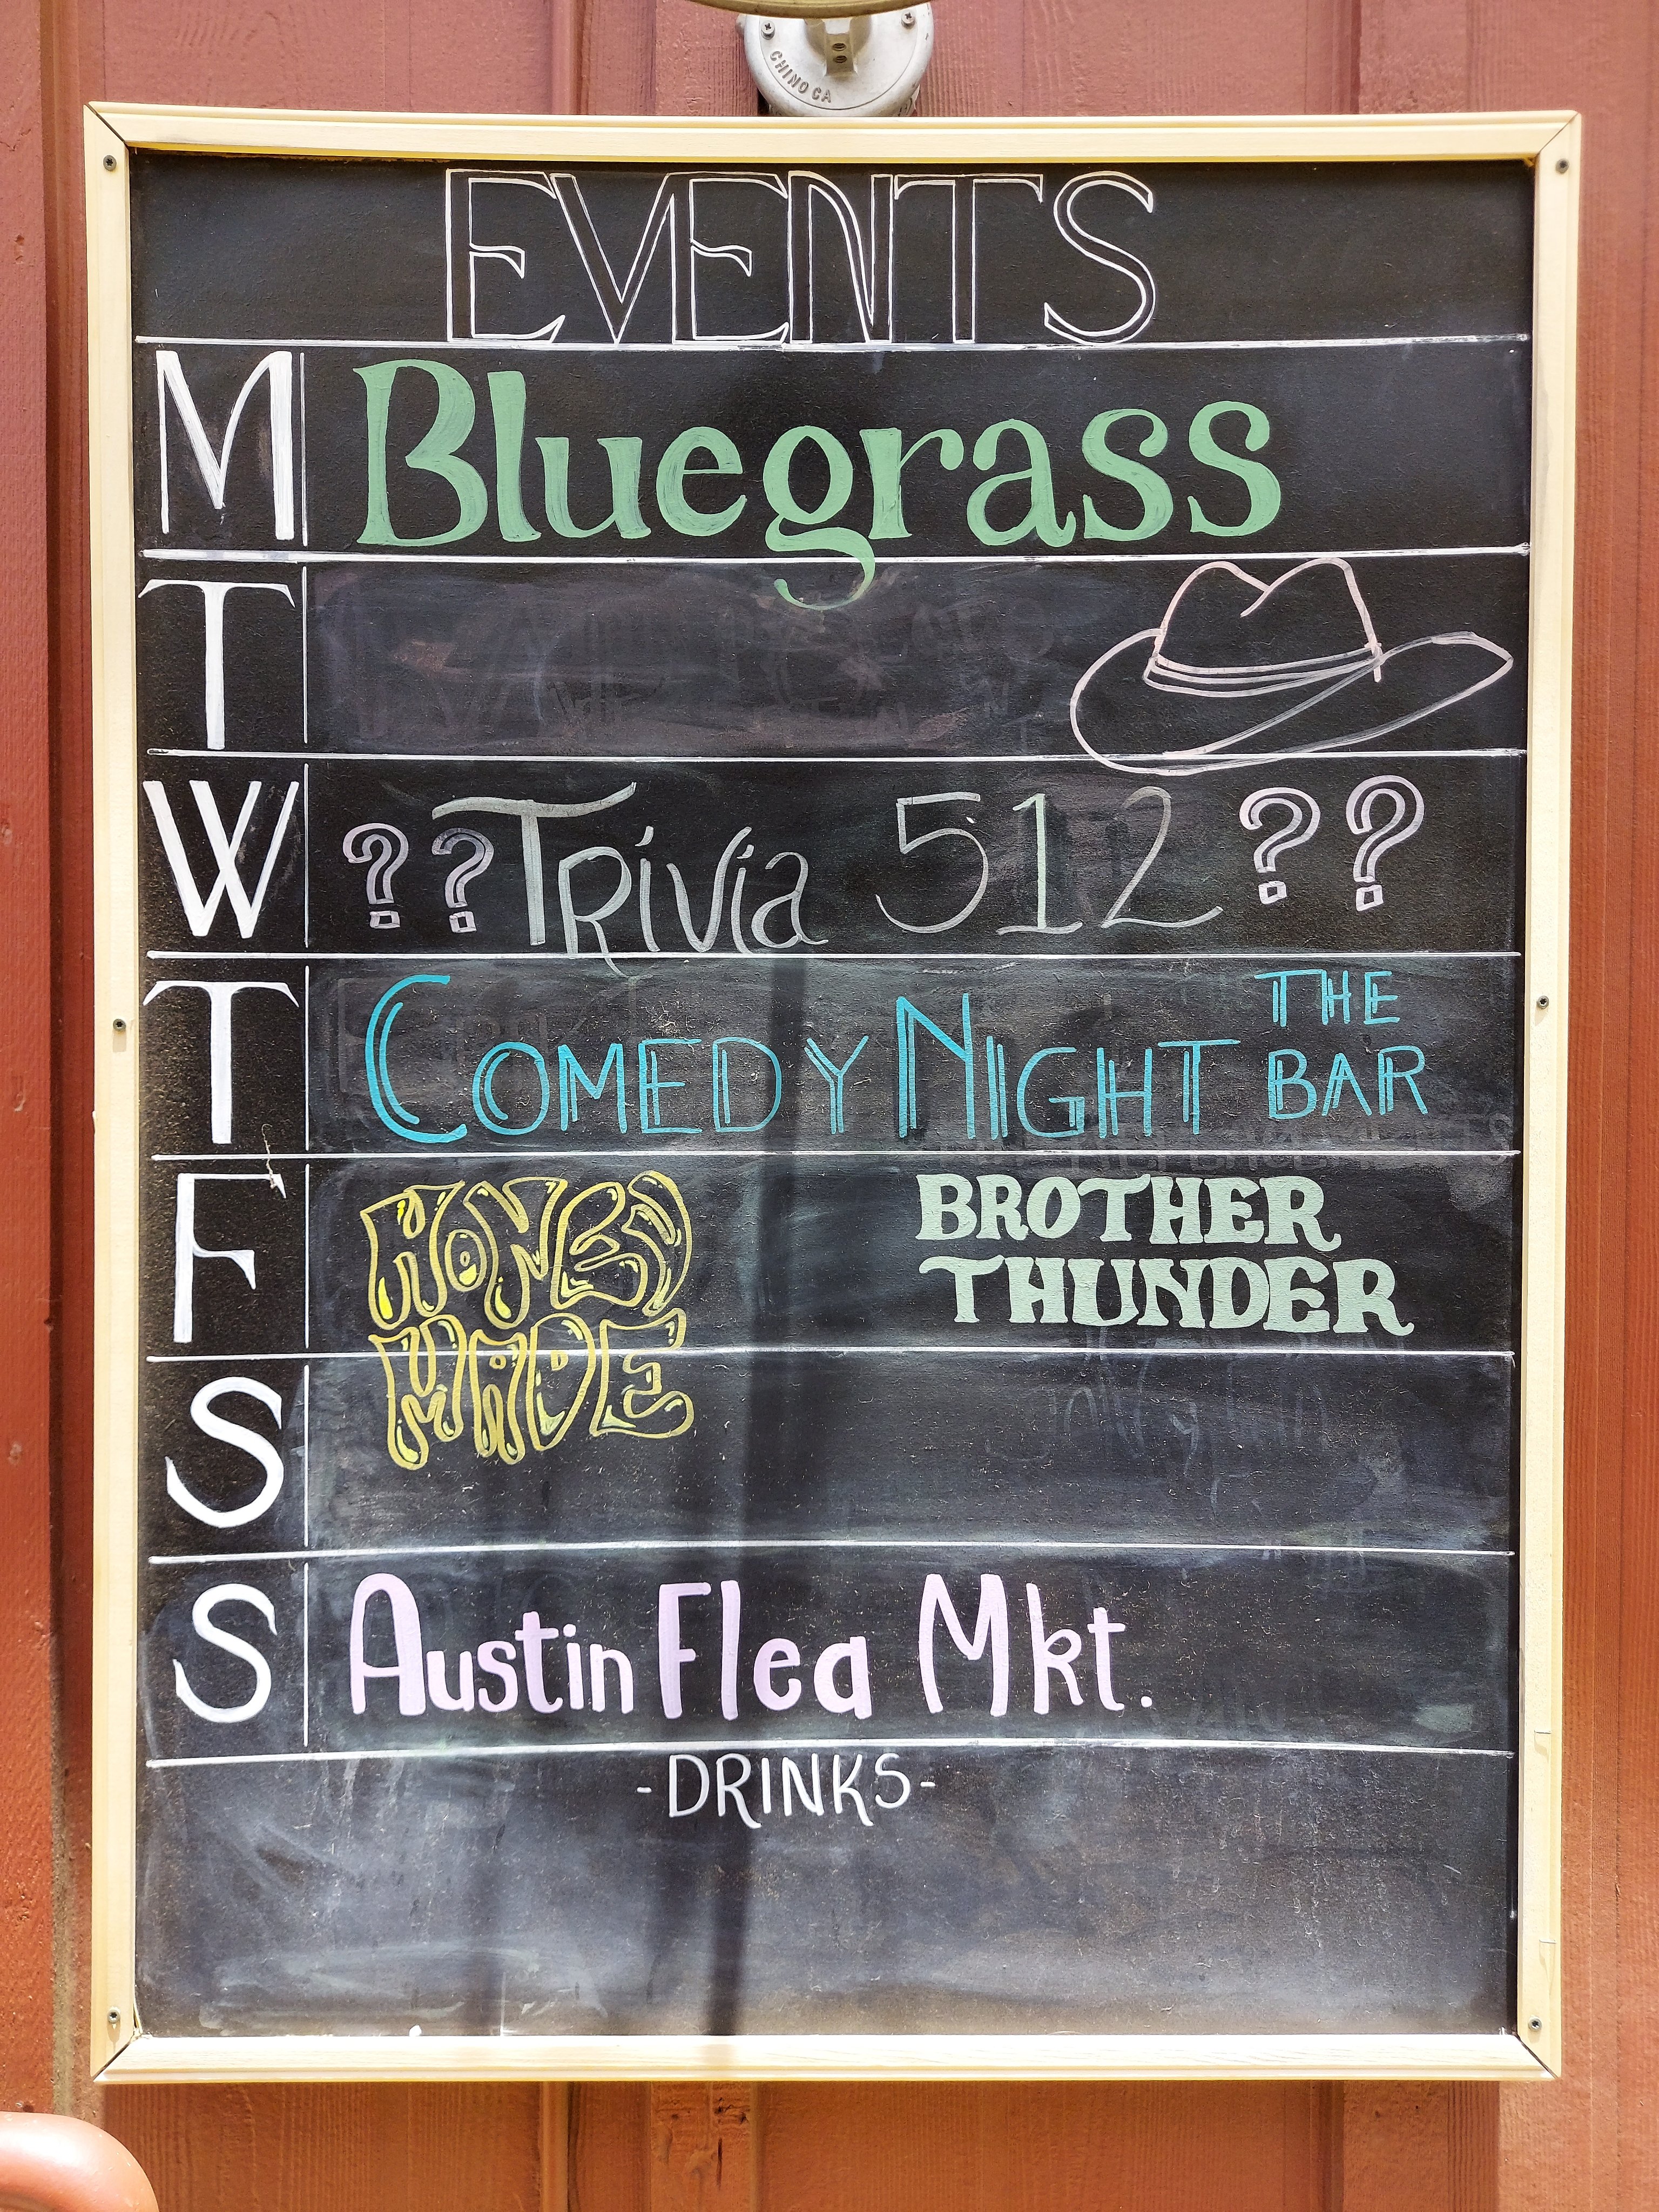 CHINO CA
EVENTS
M Bluegrass
T
W ??Trivia 512??
T COMEDY NIGHT THE BAR
F HONEY MADE BROTHER THUNDER
S
S Austin Flea Mkt.
-DRINKS-